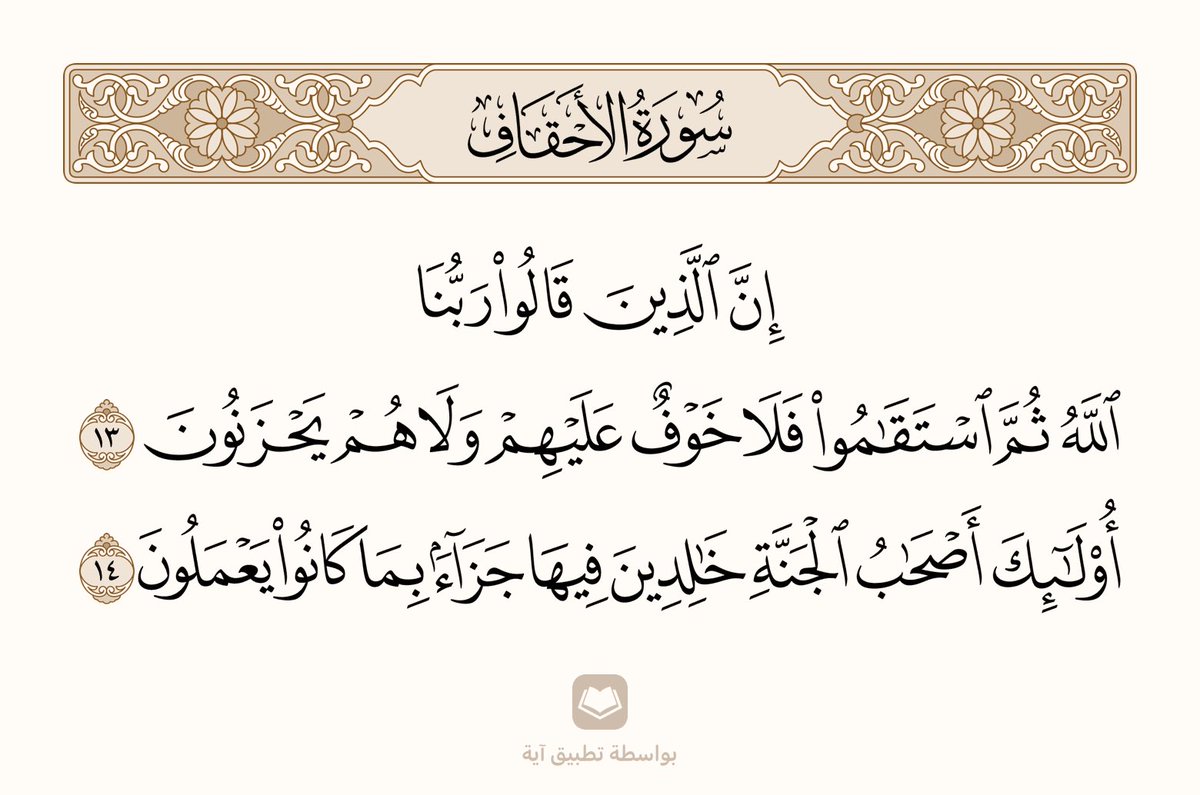 سُورَةُ الأَحْقَافِ
إِنَّ ٱلَّذِينَ قَالُوا۟ رَبُّنَا
ٱللَّهُ ثُمَّ ٱسْتَقَـٰمُوا۟ فَلَا خَوْفٌ عَلَيْهِمْ وَلَا هُمْ يَحْزَنُونَ ١٣
أُو۟لَـٰٓئِكَ أَصْحَـٰبُ ٱلْجَنَّةِ خَـٰلِدِينَ فِيهَا جَزَآءًۢ بِمَا كَانُوا۟ يَعْمَلُونَ ١٤
بواسطة تطبيق آية